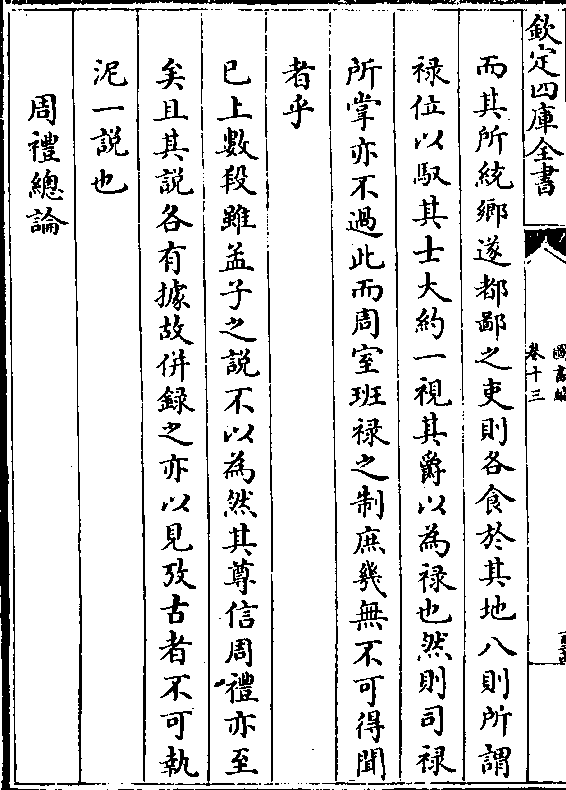 欽定四庫全書
卷十三
而其所統鄉遂都鄙之吏則各食於其地八則所謂
禄位以馭其士大約一視其爵以為禄也然則司禄
所掌亦不過此而周室班禄之制庶幾無不可得聞
者乎
已上數段雖孟子之說不以為然其尊信周禮亦至
矣且其說各有據故併録之亦以見攷古者不可執
泥一說也
周禮總論